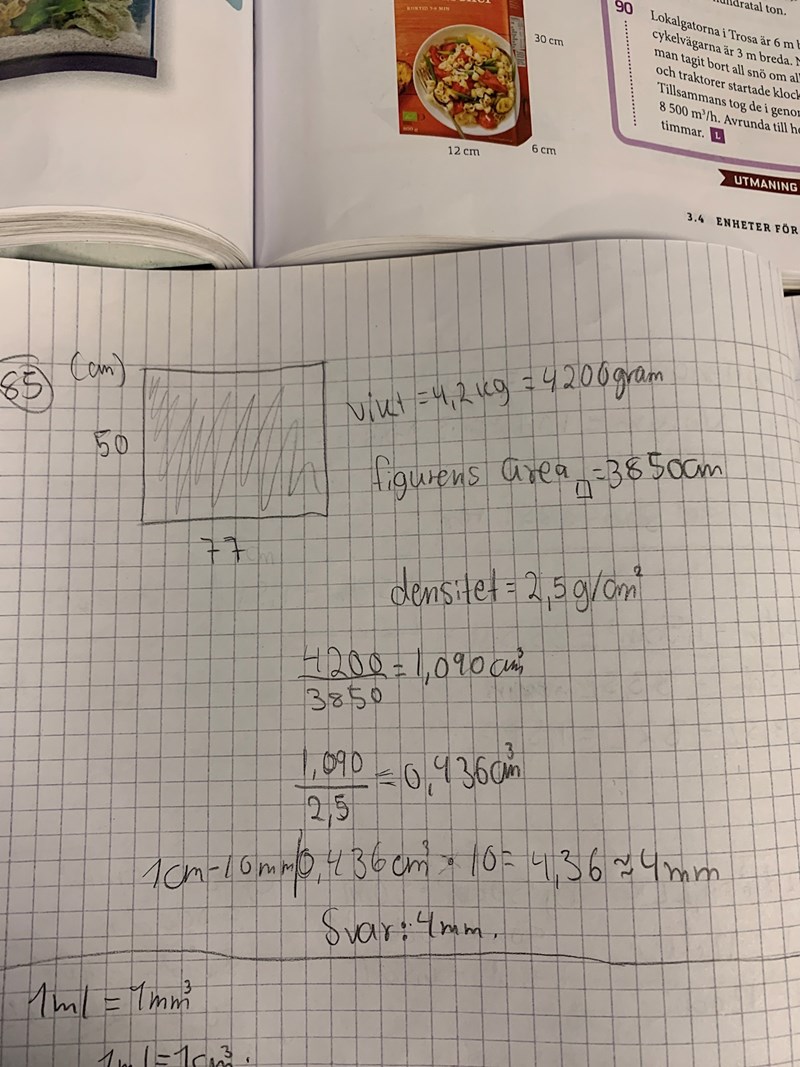 30 cm
12 cm
6 cm
90
hundratal ton.
Lokalgatorna i Trosa är 6 m
cykelvägarna är 3 m breda.
man tagit bort all snö om
och traktorer startade
Tillsammans tog de i
8 500 m³/h. Avrunda till
timmar. L
UTMANING
3.4 ENHETER FÖR
85
(cm)
50
77
vikt = 4,2 kg = 4200gram
figurens area □ = 3850cm
densitet = 2,5 g/cm²
4200/3850 = 1,090 cm³
1,090/2,5 = 0,436cm³
1cm-10mm/0,436cm³ · 10 = 4,36 ≈ 4mm
Svar: 4mm.
1ml = 1mm³
1ml = 1cm³.